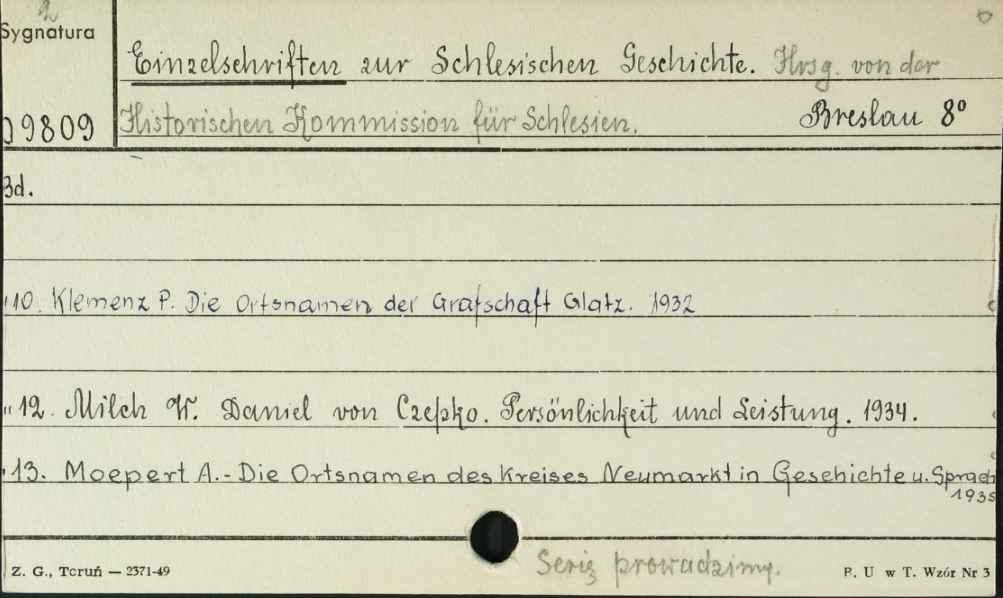 2
Sygnatura
Einzelschriften zur Schlesischen Geschichte. Hrsg. von der
09809 Historischen Kommission für Schlesien. Breslau 8°
Bd.
"10. Klemenz P. Die Ortsnamen der Grafschaft Glatz. 1932
"12. Milch W. Daniel von Czepko. Persönlichkeit und Leistung. 1934.
"13. Moepert A.- Die Ortsnamen des Kreises Neumarkt in Geschichte u. Sprach
1935
Serię prowadzimy.
Z. G., Toruń — 2371-49 B. U w T. Wzór Nr 3